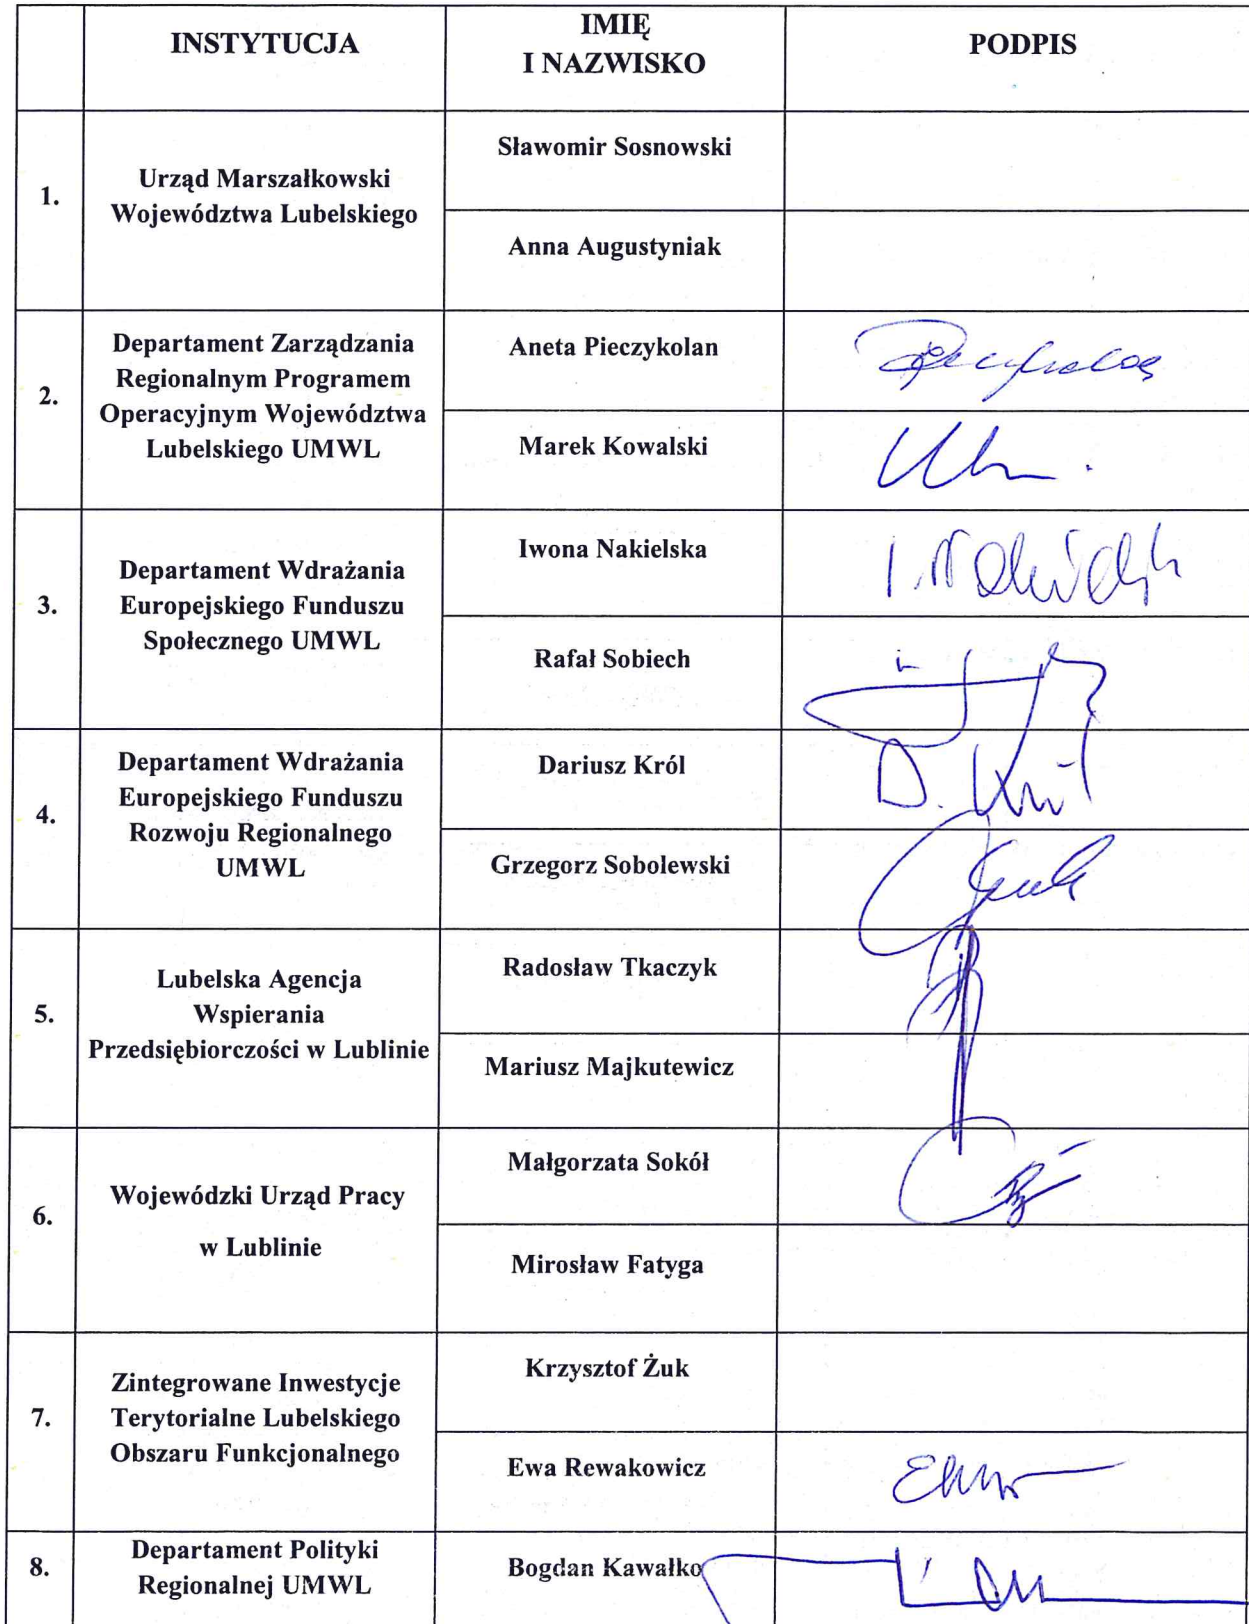 INSTYTUCJA
IMIĘ
I NAZWISKO
PODPIS
1.
Urząd Marszałkowski
Województwa Lubelskiego
Sławomir Sosnowski
Anna Augustyniak
2.
Departament Zarządzania
Regionalnym Programem
Operacyjnym Województwa
Lubelskiego UMWL
Aneta Pieczykolan
Marek Kowalski
3.
Departament Wdrażania
Europejskiego Funduszu
Społecznego UMWL
Iwona Nakielska
Rafał Sobiech
4.
Departament Wdrażania
Europejskiego Funduszu
Rozwoju Regionalnego
UMWL
Dariusz Król
D. Król
Grzegorz Sobolewski
5.
Lubelska Agencja
Wspierania
Przedsiębiorczości w Lublinie
Radosław Tkaczyk
Mariusz Majkutewicz
6.
Wojewódzki Urząd Pracy
w Lublinie
Małgorzata Sokół
Mirosław Fatyga
7.
Zintegrowane Inwestycje
Terytorialne Lubelskiego
Obszaru Funkcjonalnego
Krzysztof Żuk
Ewa Rewakowicz
8.
Departament Polityki
Regionalnej UMWL
Bogdan Kawałko